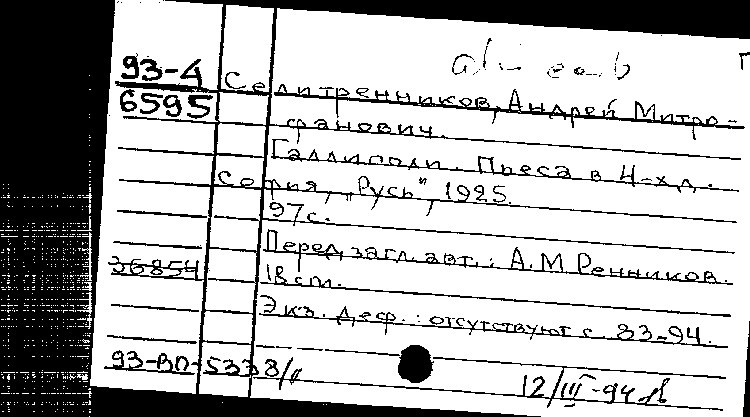 93-4
6595
Селитренников, Андрей Митро-
фанович.
Галлиполи. Пьеса в 4-х д.
София, „Русь“, 1925.
97с.
Перед загл. авт.: А.М Ренников.
36854
Экз. деф.: отсутствуют с 83-94.
93-ВП-5338/
12/III-94